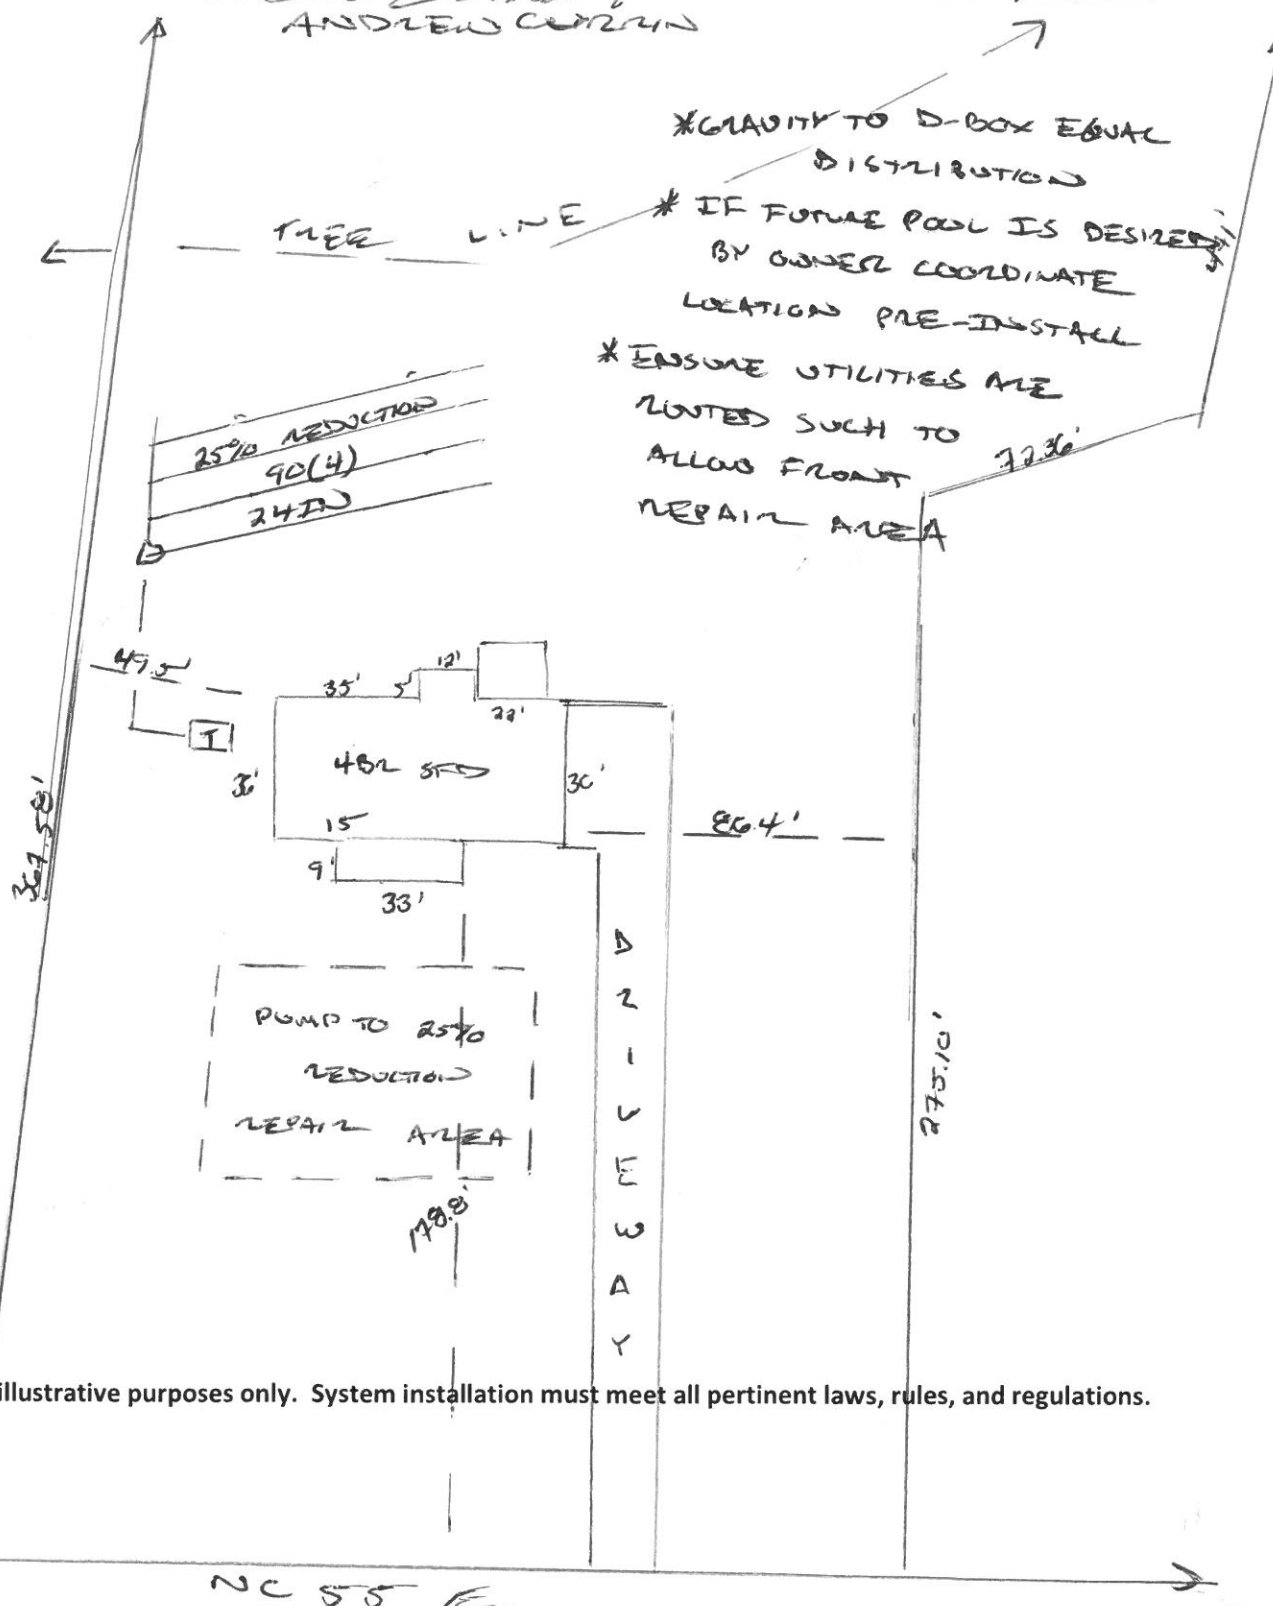 ANDREW CURRIN
*GRAVITY TO D-BOX EQUAL
DISTRIBUTION
TREE LINE
* IF FUTURE POOL IS DESIRED
BY OWNER COORDINATE
LOCATION PRE-INSTALL
* ENSURE UTILITIES ARE
ROUTED SUCH TO
ALLOW FRONT
REPAIR AREA
25% REDUCTION
90(4)
24IN
72.36'
47.5'
35'
5'
12'
22'
T
4BR SFD
36'
30'
15
86.4'
9'
33'
367.58'
DRIVEWAY
PUMP TO 25%
REDUCTION
REPAIR AREA
275.10'
178.8'
illustrative purposes only. System installation must meet all pertinent laws, rules, and regulations.
NC 55 E